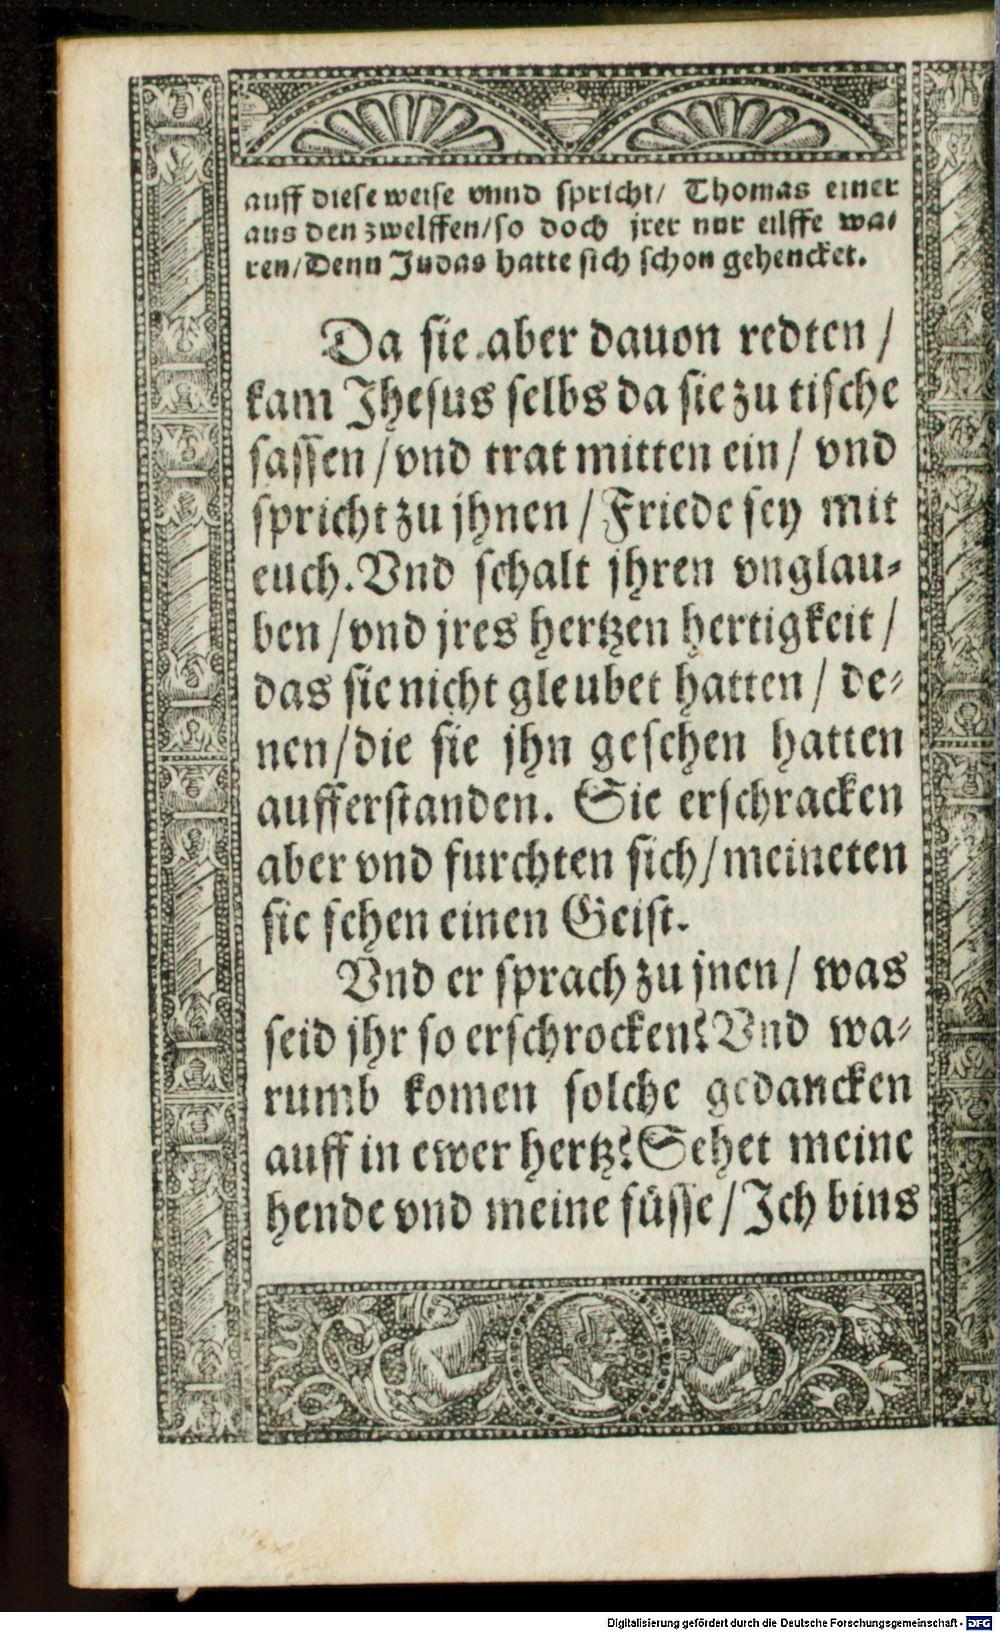 auff diese weise vnnd spricht/ Thomas einer
aus den zwelffen/so doch jrer nur eilffe wa-
ren/Denn Judas hatte sich schon gehencket.
Da sie aber dauon redten /
kam Jhesus selbs da sie zu tische
sassen /vnd trat mitten ein/ vnd
spricht zu jhnen /Friede sey mit
euch.Vnd schalt jhren vnglau-
ben /vnd jres hertzen hertigkeit /
das sie nicht gleubet hatten / de-
nen/die sie jhn gesehen hatten
aufferstanden. Sie erschracken
aber vnd furchten sich/meineten
sie sehen einen Geist.
Vnd er sprach zu jnen/ was
seid jhr so erschrocken? Vnd wa-
rumb komen solche gedancken
auff in ewer hertz? Sehet meine
hende vnd meine füsse/Ich bins
Digitalisierung gefördert durch die Deutsche Forschungsgemeinschaft - DFG